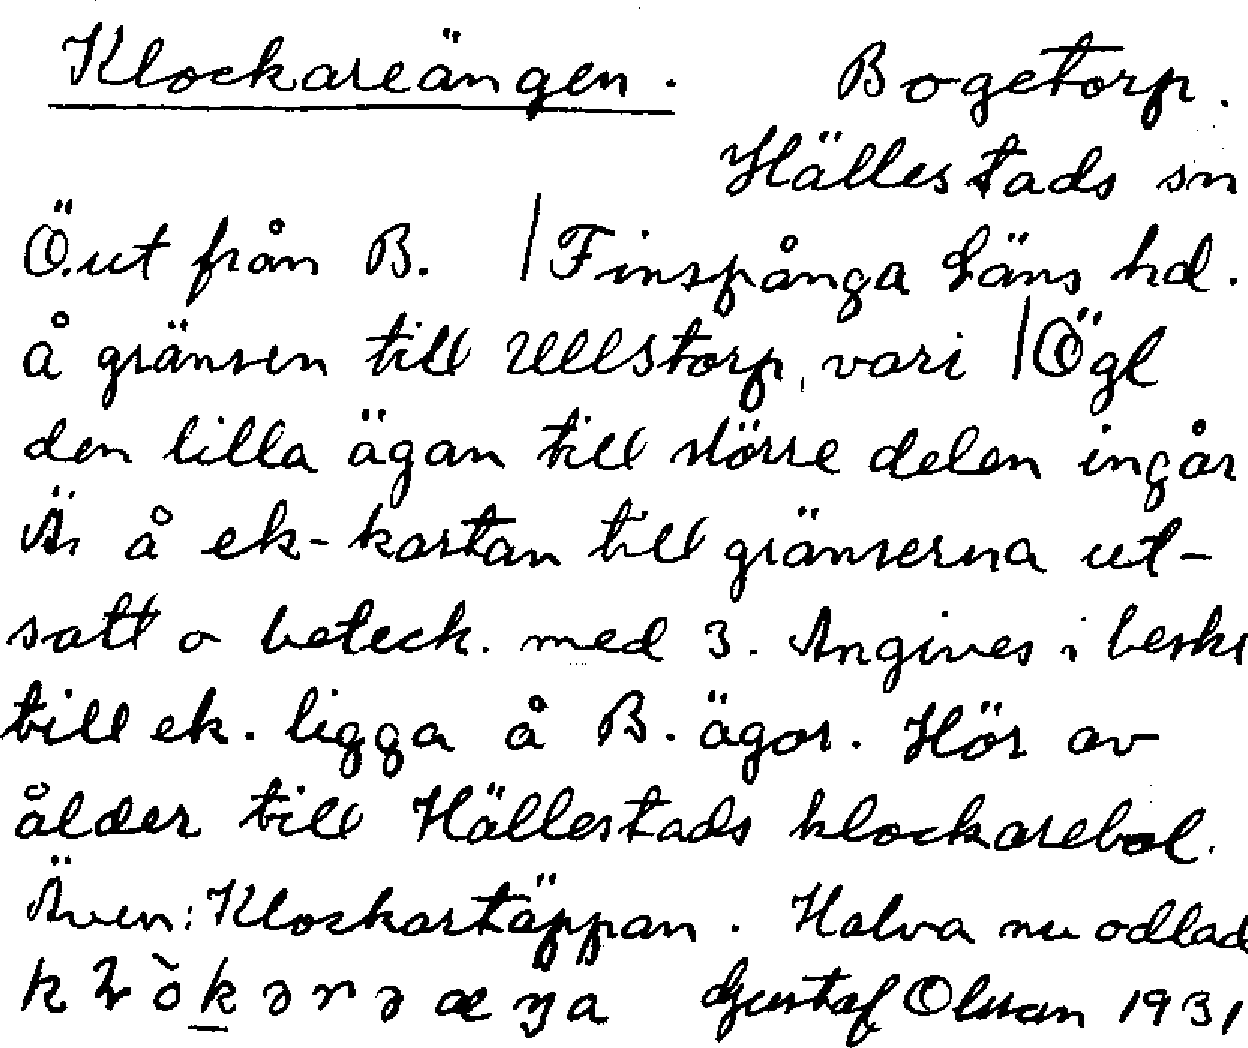 Klockareängen. Bogetorp.
Hällestads sn
Ö.ut från B. | Finspånga Läns hd.
å gränsen till Ullstorp, vari | Ögl
den lilla ägan till större delen ingår
Är å ek-kartan till gränserna ut-
satt o beteck. med 3. Angives i beskr
till ek. ligga å B. ägor. Hör av
ålder till Hällestads klockarebol.
Även: Klockartäppan. Halva nu odlad
Gustaf Olsson 1931